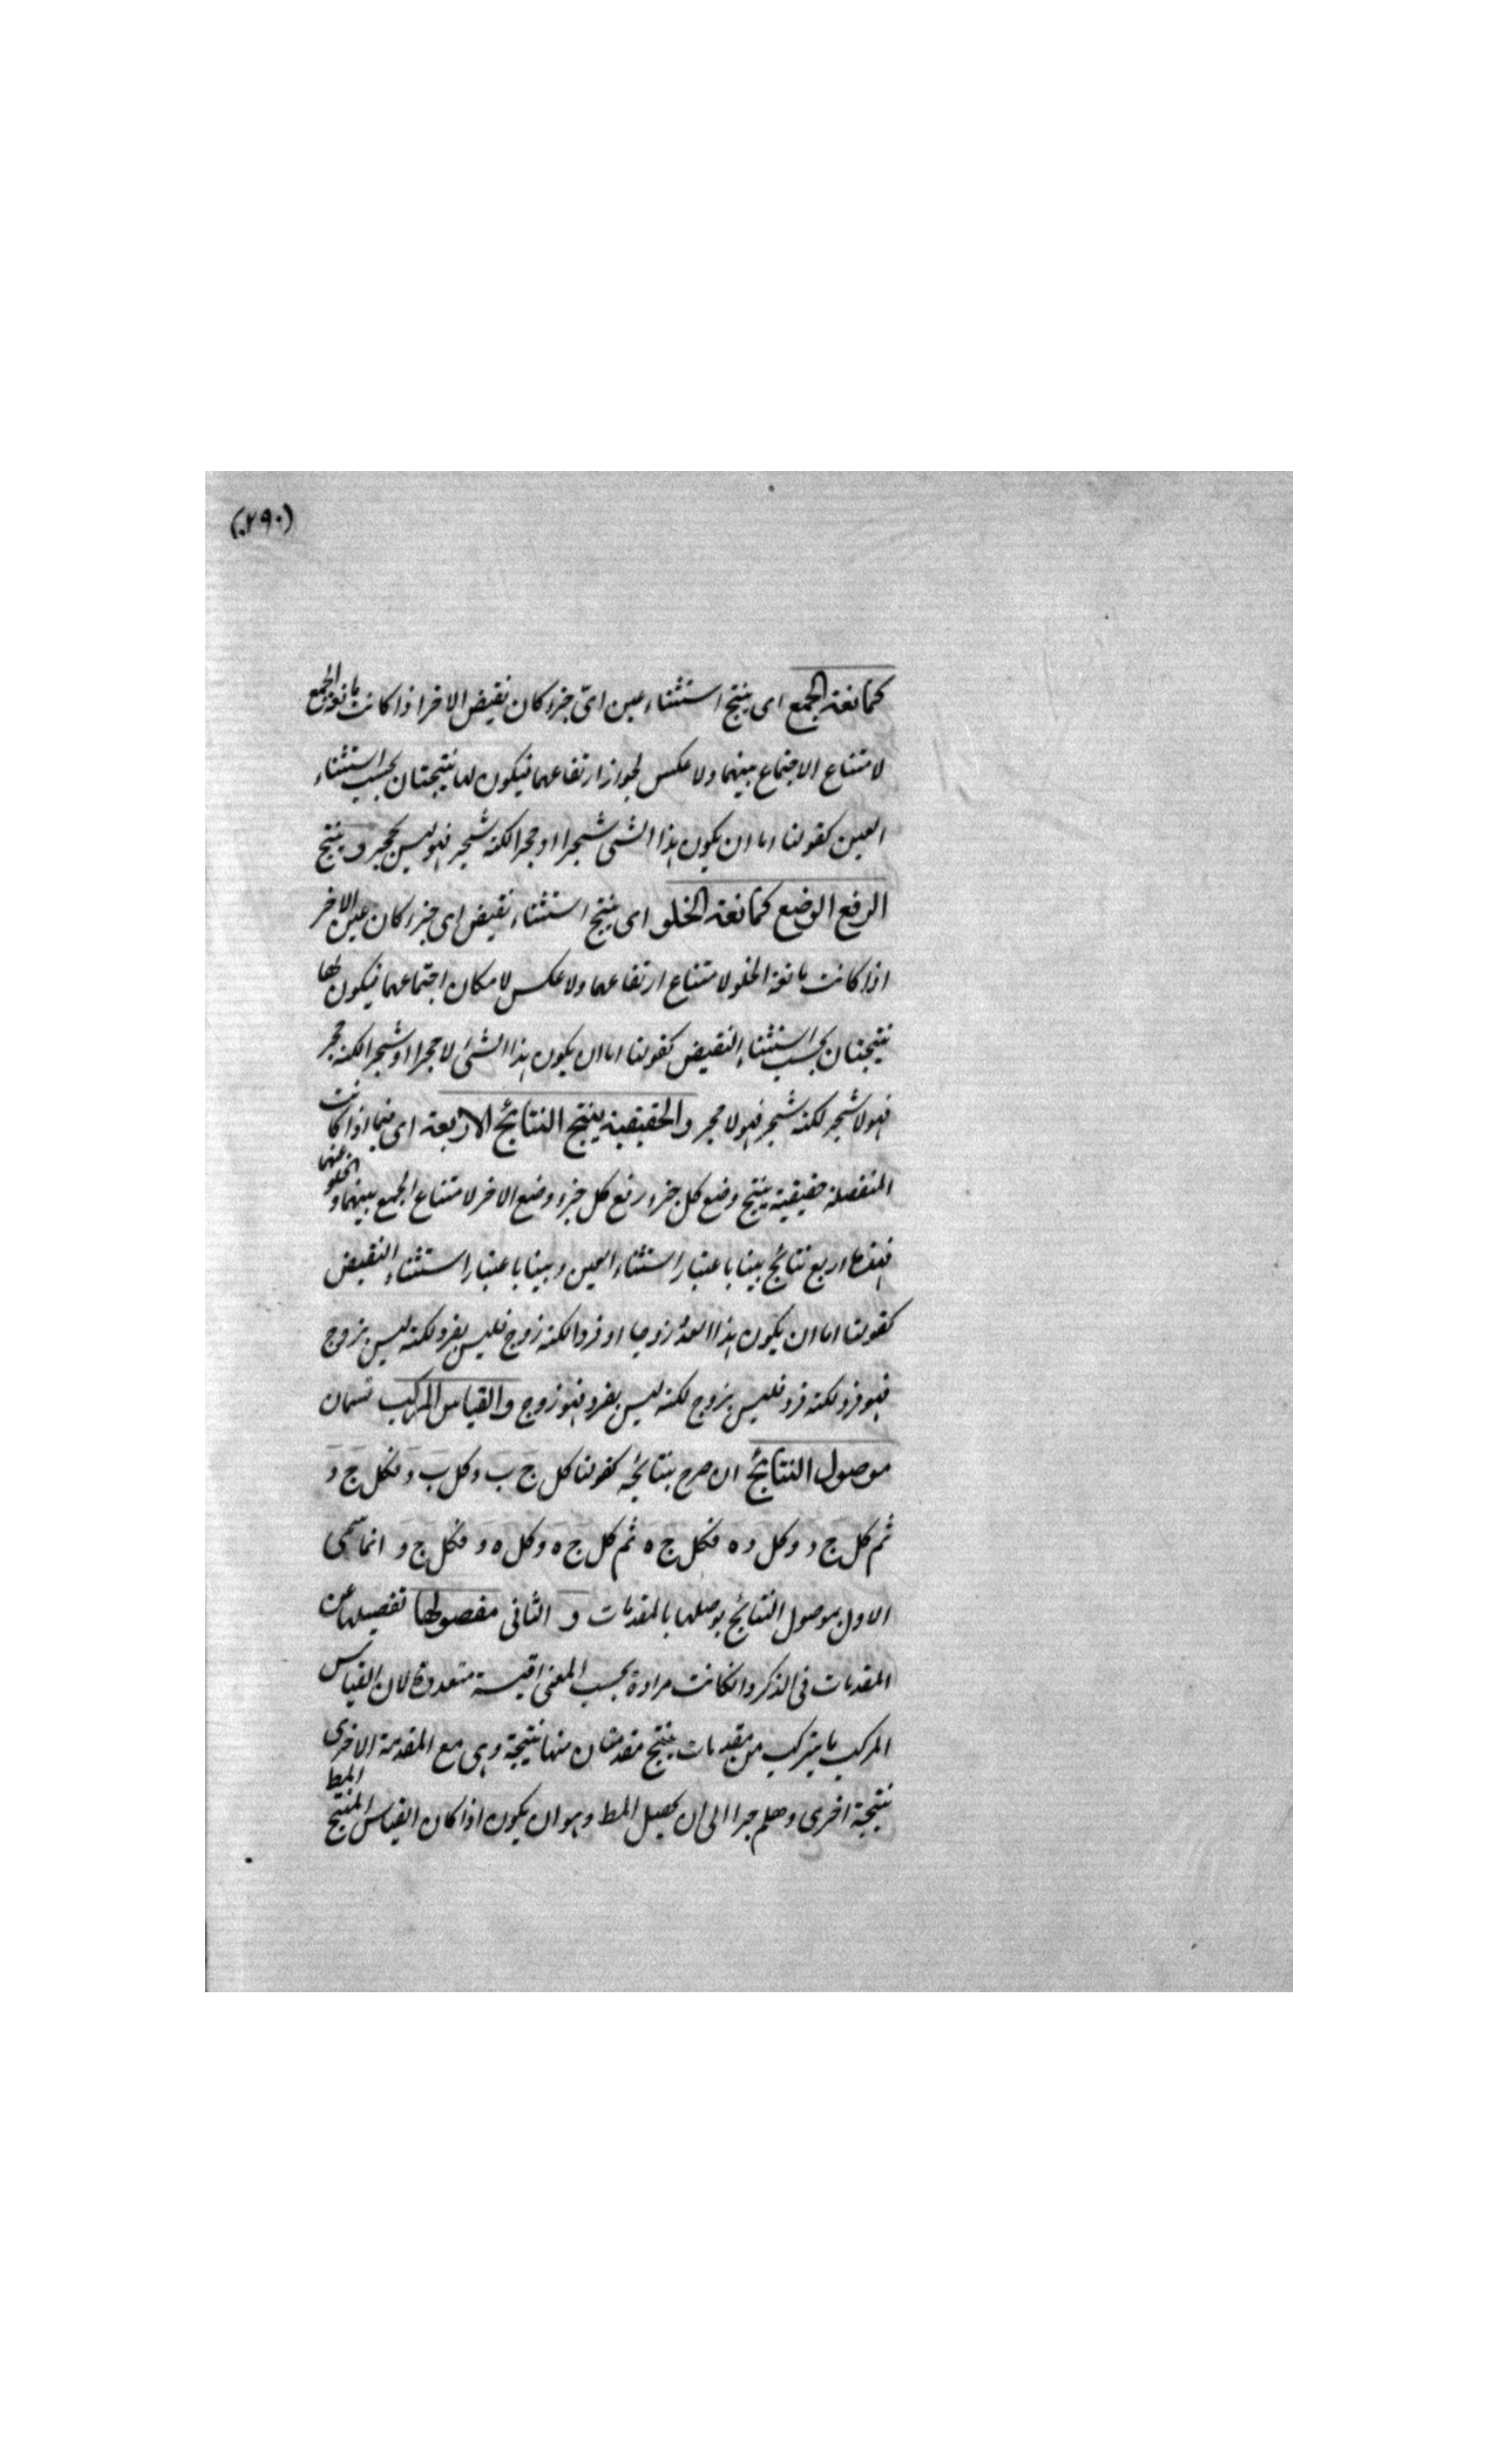 (٢٩٠)
كمانعة الجمع اى ينتج استثناء عين اىّ جزء كان نقيض الاخر اذا كانت مانعة الجمع
لامتناع الاجتماع بينهما ولا عكس لجواز ارتفاعهما فيكون لها نتيجتان بحسب استثناء
العين كقولنا اما ان يكون هذا الشئ شجرا او حجرا لكنه شجر فهو ليس بحجر و ينتج
الرفع الوضع كمانعة الخلو اى ينتج استثناء نقيض اى جزء كان عين الاخر
اذا كانت مانعة الخلو لامتناع ارتفاعهما ولا عكس لامكان اجتماعهما فيكون لها
نتيجتان بحسب استثناء النقيض كقولنا اما ان يكون هذا الشئ لا حجرا او لا شجرا لكنه حجر
فهو لا شجر لكنه شجر فهو لا حجر والحقيقية ينتج النتائج الاربعة اى فيما اذا كانت
المنفصلة حقيقية ينتج وضع كل جزء رفع كل جزء وضع الاخر لامتناع الجمع بينهما والخلو عنهما
فلها اربع نتائج باعتبار استثناء العين و باعتبار استثناء النقيض
كقولنا اما ان يكون هذا العدد زوجا او فردا لكنه زوج فليس بفرد لكنه ليس بزوج
فهو فرد لكنه فرد فليس بزوج لكنه ليس بفرد فهو زوج والقياس المركب قسمان
موصول النتائج ان صرح بنتائجه كقولنا كل ج ب وكل ب د فكل ج د
ثم كل ج د وكل د ه فكل ج ه ثم كل ج ه وكل ه و فكل ج و انما سمى
الاول موصول النتائج بوصلها بالمقدمات و الثانى مفصولها تفصيلها عن
المقدمات فى الذكر وانكانت مرادة بحسب المعنى اقيسة متعددة لان القياس
المركب ما يتركب من مقدمات ينتج مقدمتان منها نتيجة وهى مع المقدمة الاخرى
نتيجة اخرى وهلم جرا الى ان يحصل المط وهو ان يكون اذا كان القياس المنتج المط